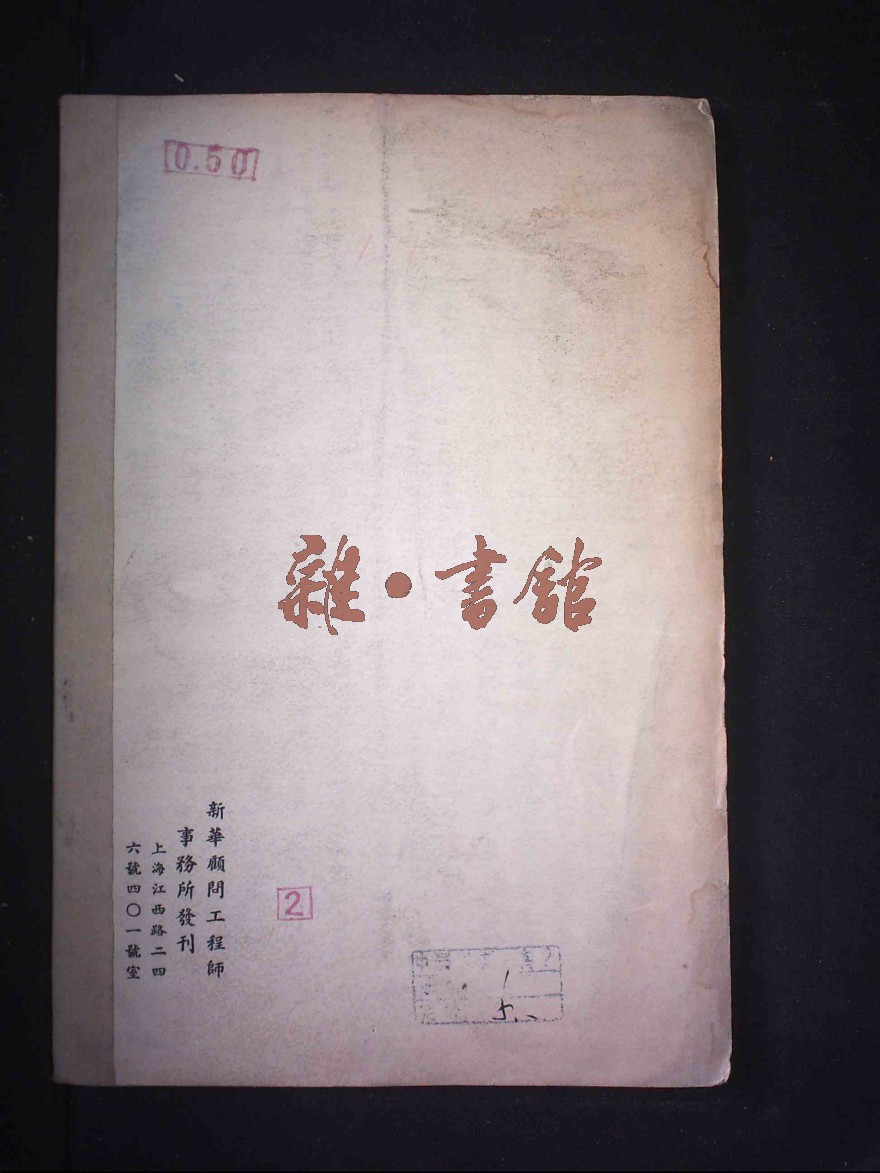 0.50
雜·書館
新華顧問工程師
事務所發刊
上海江西路二四
六號四〇一號室
2